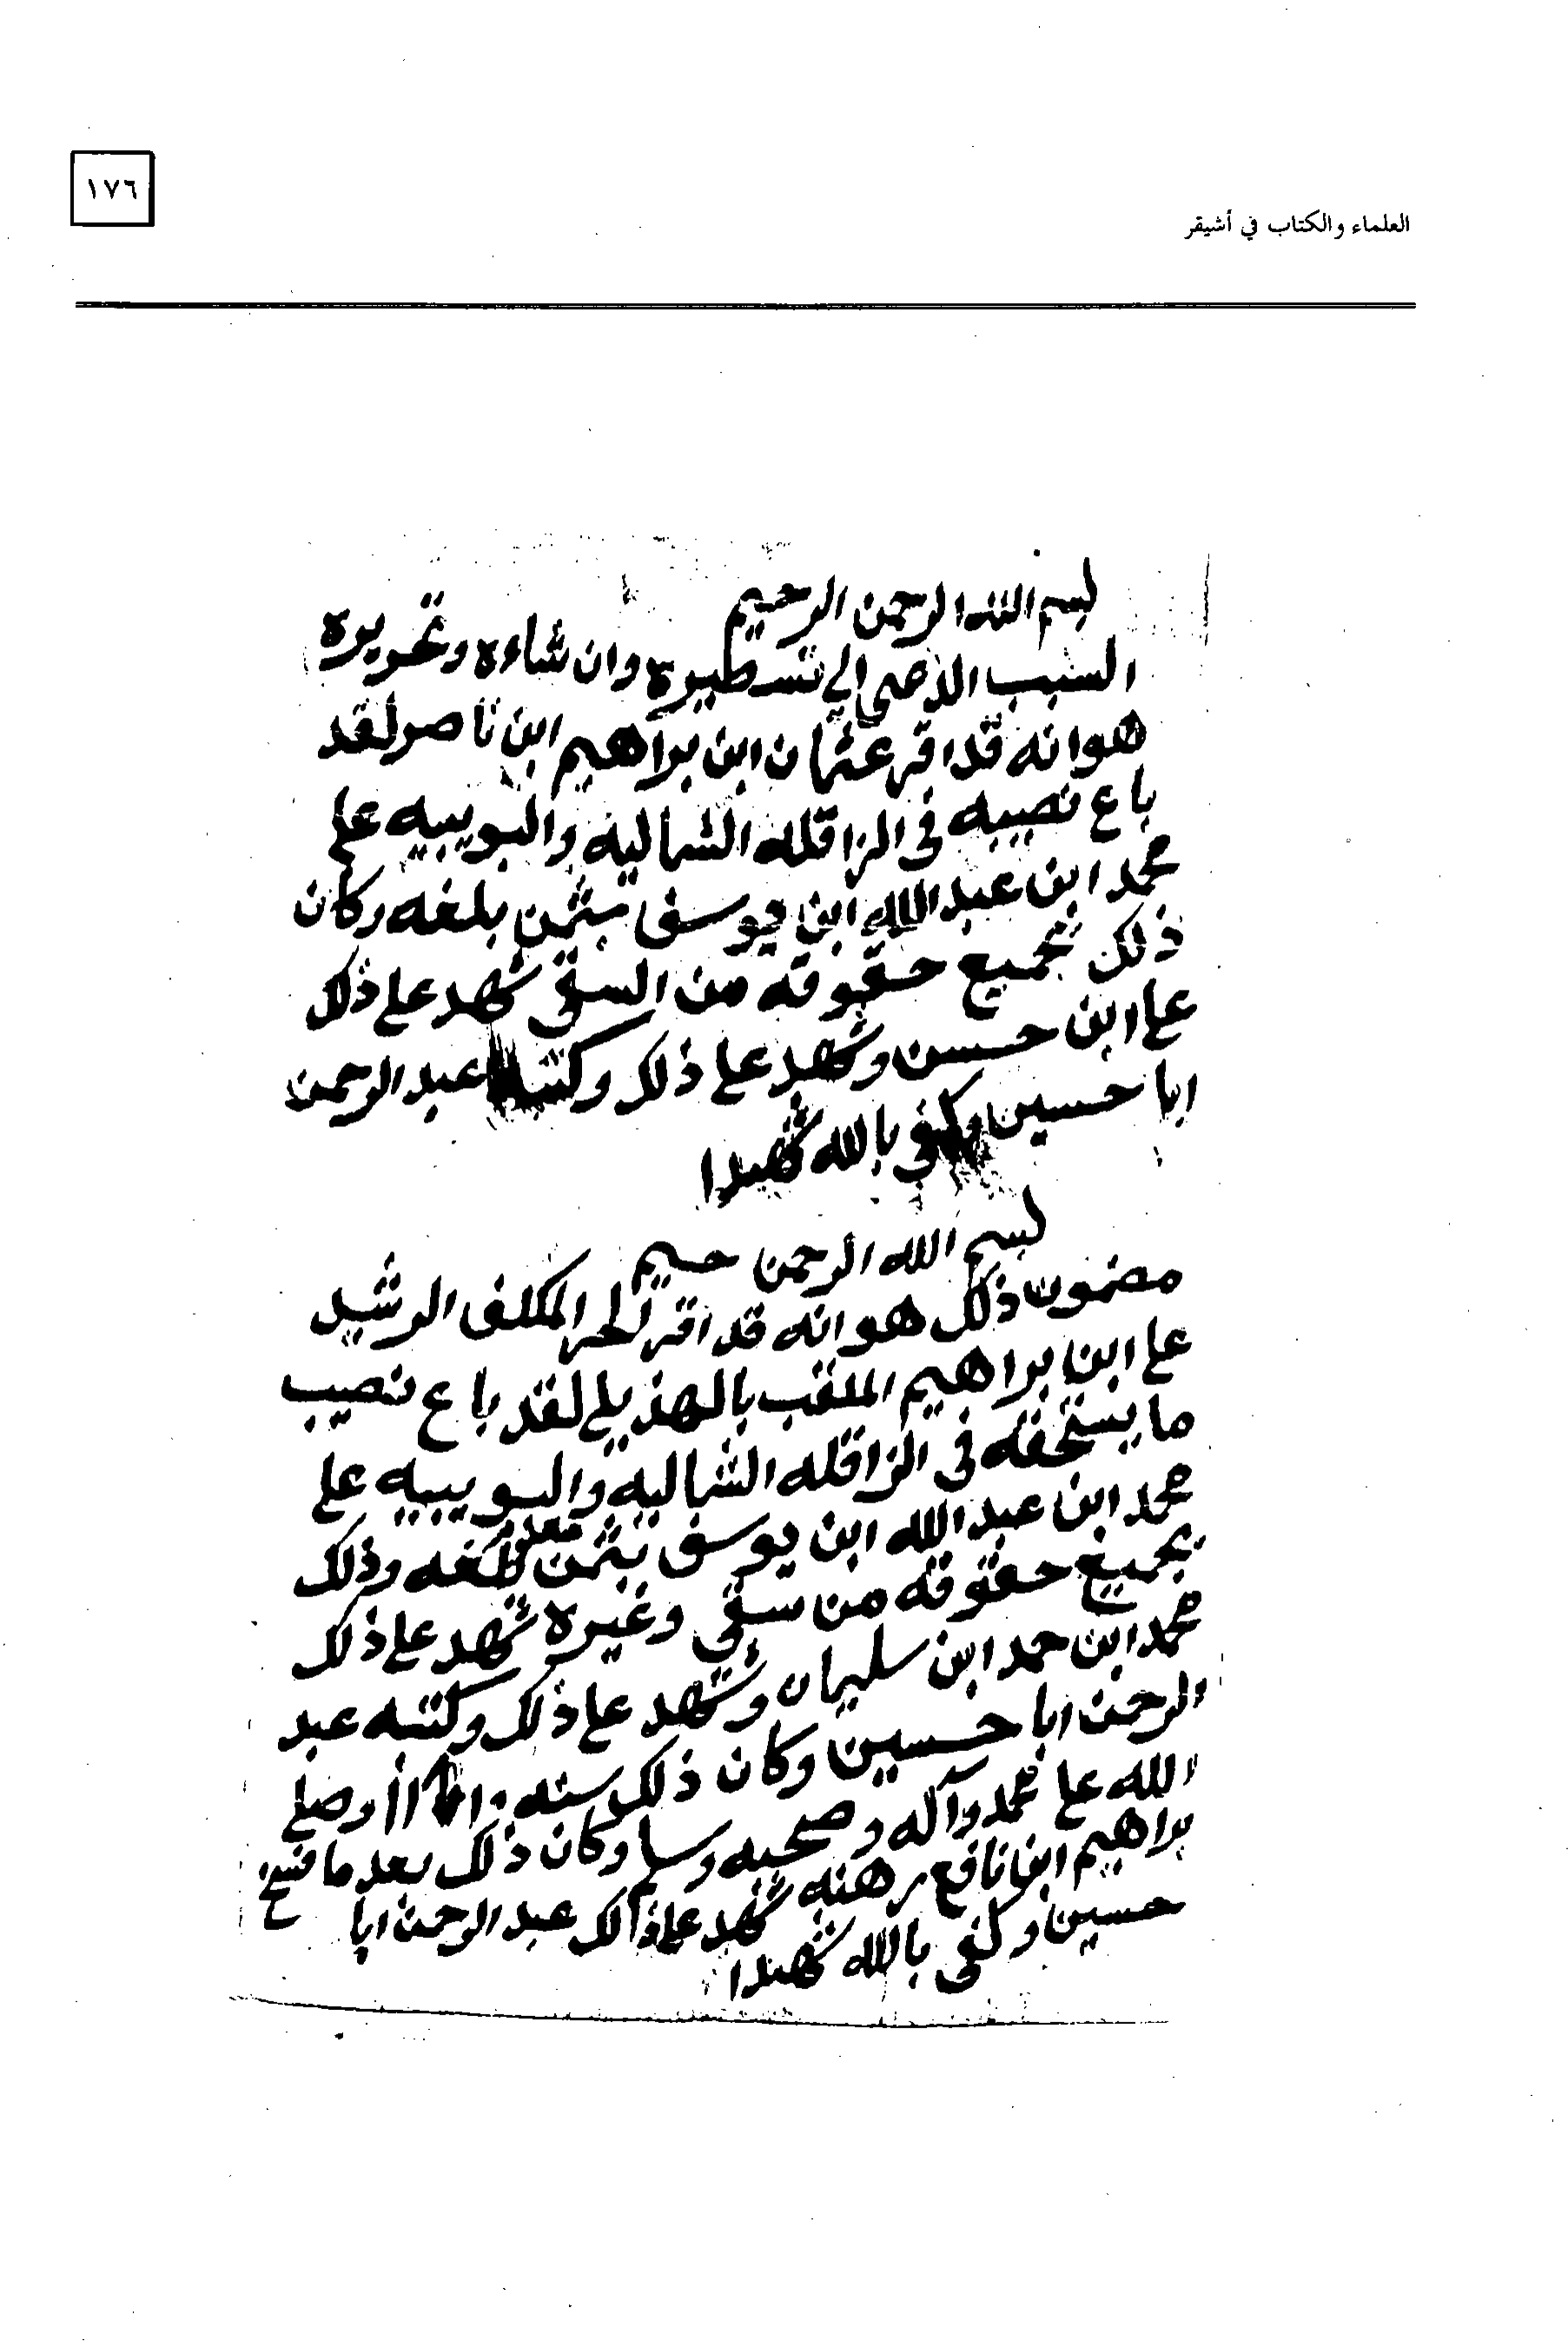 ١٧٦
العلماء والكتاب في أشيقر
بسم الله الرحمن الرحيم
السبب الداعي الي تسطيره وان شاءه وتحريره
هوانه قد اقر عثمان ابن براهيم ابن ناصر لقد
باع نصيبه في الزاقله الشماليه والبويبيه على
محمد ابن عبد الله ابن يوسف بثمن بلغه وكان
ذلك بجميع حقوقه من السقي شهد على ذلك
علي ابن حسن وشهد على ذلك وكتبه عبد الرحمن
ابا حسين وكفى بالله شهيدا
بسم الله الرحمن حيم
مضمون ذلك هو انه قد اقر الحر المكلف الرشيد
علي ابن براهيم الملقب بالهذيلي لقد باع نصيب
ما يستحقه في الزاقله الشماليه والبويبيه على
محمد ابن عبد الله ابن يوسف بثمن معلوم بلغه وذلك
بجميع حقوقه من سقي وغيره شهد على ذلك
محمد ابن حمد ابن سليمان وشهد على ذلك وكتبه عبد
الرحمن ابا حسين وكان ذلك سنه وصلى
الله على محمد وآله وصحبه وسلم وكان ذلك بعد ما فسخ
براهيم ابن نافع رهنه شهد على ذالك عبد الرحمن ابا
حسين وكفى بالله شهيدا